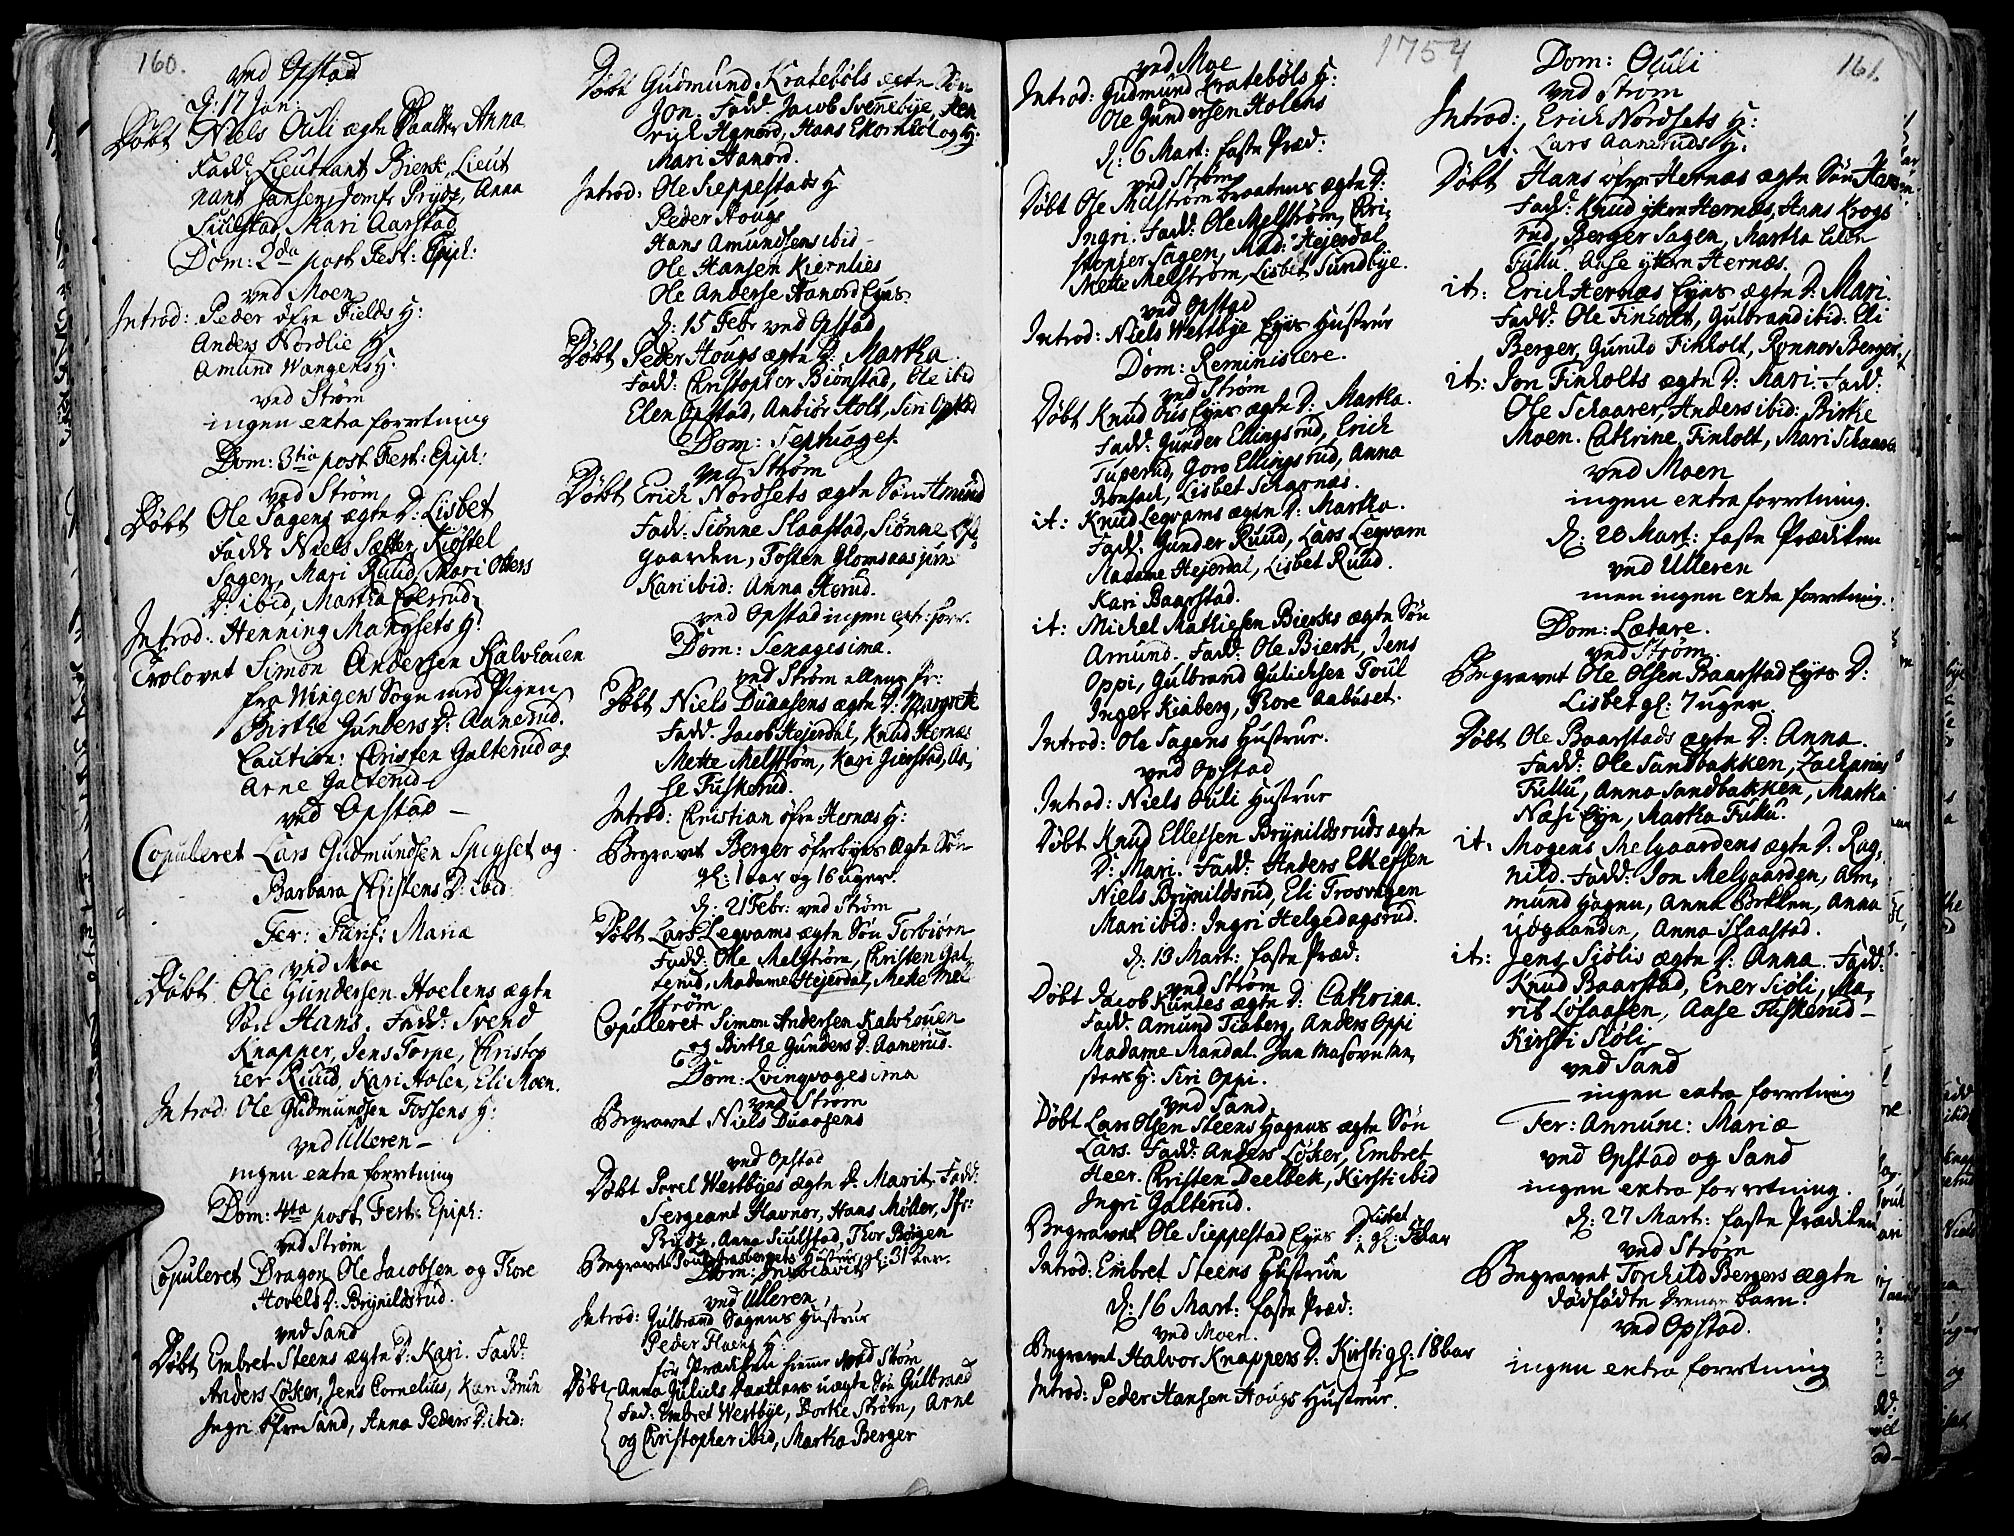 160.
ved Opstad
D: 17 Jan:
Døbt Niels Ouli ægte Daatter Anna
Fadd: Lieutnant Bierk, Lieut
nant Jansen, Jomfr Prydz, Anna
Siulstad, Mari Aarstad
Dom: 2da post Fest: Epiph:
ved Moen
Introd: Peder øfre Fields H:
Anders Nordlie H:
Amund Wangens H:
ved Strøm
ingen extra forretning
Dom: 3tia post Fest: Epiph:
ved Strøm
Døbt Ole Sagens ægte D: Lisbet
Fadd: Niels Sætter, Kiøstel
Sagen, Mari Ruud, Mari Olters
D: ibid, Martha
Introd: Henning Mangsets H:
Trolovet Simon Andersen Kalvhouen
fra Wingers Sogn med Pigen
Birthe Gunders D: Aanerud.
Caution: Christen Galterud og
Arne Galterud
ved Opstad —
Copuleret Lars Gudmundsen Spigset og
Barbara Christens D: ibid
Fer: Purif: Mariæ
ved Moe
Døbt Ole Gundersen Hoelens ægte
Søn Hans. Fadd: Svend
Knapper, Jens Torpe, Christop
her Ruud, Kari Holen, Eli Moen.
Introd: Ole Gudmundsen Fossens H:
ved Ulleren —
ingen extra forretning
Dom: 4ta post Fest: Epiph:
ved Strøm
Copuleret Dragon Ole Jacobsen og Thore
Hovels D: Brynildsrud.
ved Sand
Døbt Embret Steens ægte D: Kari. Fadd:
Anders Løker, Jens Cornelius, Kari Brun
Ingri øfre Sand, Anna Peders D: ibid:
Døbt Gudmund Kratebøls ægte Søn
Jon. Fadd: Jacob Svenebye, Hen
rich Hanord, Hans Ekornhol og H:
Mari Hanord.
Introd: Ole Sieppestads H:
Peder Hougs
Hans Amundsens ibid —
Ole Hansen Kiernlies
Ole Anderse Hanord Eyes
D: 15 Febr ved Opstad
Døbt Peder Hougs ægte D: Martha
Fadd: Christopher Biønstad, Ole ibid
Elen Opstad, Anbiør Holt, Siri Opstad
Dom: Septuages:
ved Strøm
Døbt Erich Nordsets ægte Søn Amund
Fadd: Siønne Slaastad, Siønne
gaarden, Tosten Glomsaas jun:
Kari ibid: Anna Herud.
ved Opstad ingen ext: forr.
Dom: Sexagesima.
ved Strøm
Døbt Niels Duaasens ægte D: Margrete
Fadd: Jacob Hejerdal, Knud Hernæs
Mette Melstrøm, Kari Gierstad, Aa,
se Fuskerud.
Introd: Christian øfre Hernæs H:
Begravet Berger øfrebyes ægte Søn
gl: 1 aar og 16 uger.
D: 21 Febr: ved Strøm
Døbt Lars Legvams ægte Søn Torbiørn
Fadd: Ole Melstrøm, Christen Gal,
terud, Madame Hejerdal, Mette Mel
strøm
Copuleret Simon Andersen Kalvhouen
og Birthe Gunders D: Aanerud.
Dom: Qvinqvagesima
ved Strøm
Begravet Niels Duaasens
ved Opstad
Døbt Povel Westbyes ægte D: Marit. Fadd:
Sergeant Havnor, Hans Møller, Jfr:
Prydz, Anna Siulstad, Thor Børgen
Begravet Povel Hustrue, gl: 31 aar.
Dom: Invocavit
ved Ulleren,
Introd: Gulbrand Sagnes Hustrue
Peder Floens H:
for Prædiken hiemme ved Strøm
Døbt Anna Gulichs Daatters uægte Søn Gulbrand
Fad: Embret Westbye, Dorthe Strøm, Arne
og Christopher ibid, Martha Berger
1754
ved Moe
Introd: Gudmund Kratebøls H:
Ole Gundersen Holens
D: 6 Mart: faste Præd:
ved Strøm
Døbt Ole Milstrømbraatens ægte D:
Ingri. Fadd: Ole Melstrøm, Chri,
stopfer Sagen, Mad: Hejerdal
Mette Melstrøm, Lisbet Sundbye.
ved Opstad
Introd: Niels Westbye Eyes Hustrue
Dom: Reminiscere.
ved Strøm
Døbt Knud Ouseyes ægte D: Martha.
Fadd: Gunder Ellingsrud, Erich
Tuperud, Goro Ellingsrud, Anna
Lisbet Scharnæs.
it: Knud Legvams ægte D: Martha.
Fadd: Gunder Ruud, Lars Legvam
Madame Hejerdal, Lisbet Ruud.
Kari Baarstad.
it: Michel Mathiesen Bierkes ægte Søn
Amund. Fadd: Ole Bierk, Jens
Oppi, Gulbrand Gulichsen Toul
Inger Kiaberg, Thore Aabuset.
Introd: Ole Sagens Hustrue.
ved Opstad
Introd: Niels Ouli Hustrue
Døbt Knud Ellefsen Brynildsruds ægte
D: Mari. Fadd: Anders Ellefsen
Niels Brynildsrud, Eli Trosvigen
Mari ibid: Ingri Helgedagsrud.
D: 13 Mart: faste Præd:
ved Strøm
Døbt Jacob Kuntes ægte D: Cathrina.
Fadd: Amund Tiaberg, Anders Oppi
Madame Mandal. Jan Masovn Me,
sters H: Siri Oppi.
ved Sand
Døbt Lars Olsen Steens Hagnes ægte Søn
Lars. Fadd: Anders Løker, Embret
Heer. Christen Deelbek, Kirsti ibid
Ingri Galterud.
Begravet Ole Sieppestad Eyes D: Lisbet gl: aar
Introd: Embret Steens Hustrue
D: 16 Mart: faste Præd:
ved Moen.
Begravet Halvor Knappers D: Kirsti gl: 18 aar
Introd: Peder Hansen Hougs Hustrue.
161.
Dom: Oculi
ved Strøm
Introd: Erich Nordsets H:
it. Lars Aaneruds H:
Døbt Hans øfre Hernæs ægte Søn
Fadd: Knud ytern Hernæs, Hans Krogs
rud, Berger Sagen, Martha Elen
Fullu. Aase ytern Hernæs.
it: Erich Hernæs Eyes ægte D: Mari.
Fadd: Ole Finholt, Gulbrand ibid: Eli
Berger, Gunild Finholt, Ronnov Berger.
it: Jon Finholts ægte D: Mari. Fadd:
Ole Schaarer, Anders ibid: Birthe
Moen. Cathrine Finholt, Mari Schaarer
ved Moen
ingen extra forretning.
D: 20 Mart: faste Prædiken
ved Ulleren
men ingen extra forretning.
Dom: Lætare.
ved Strøm.
Begravet Ole Olsen Baarstad Eyes D:
Lisbet gl: 7 uger.
Døbt Ole Baarstads ægte D: Anna.
Fadd: Ole Sandbakken, Zacharias
Fullu, Anna Sandbakken, Martha
Næss Eye, Martha Fullu.
it: Mogens Melgaardens ægte D: Rag,
nild. Fadd: Jon Melgaarden, Am,
mund Hagen, Anna Berklen, Anna
udgaarden, Anna Slaastad.
it: Jens Siølis ægte D: Anna. Fadd:
Knud Baarstad, Ener Siøli, Ma,
rit Løfaasen, Aase Fuskerud —
Kirsti Siøli
ved Sand
ingen extra forretning
Fer: Annunc: Mariæ
ved Opstad og Sand
ingen extra forretning.
D: 27 Mart: faste Prædiken
ved Strøm
Begravet Torhild Bergers ægte
dødfødte Drenge barn.
ved Opstad.
ingen extra forretning